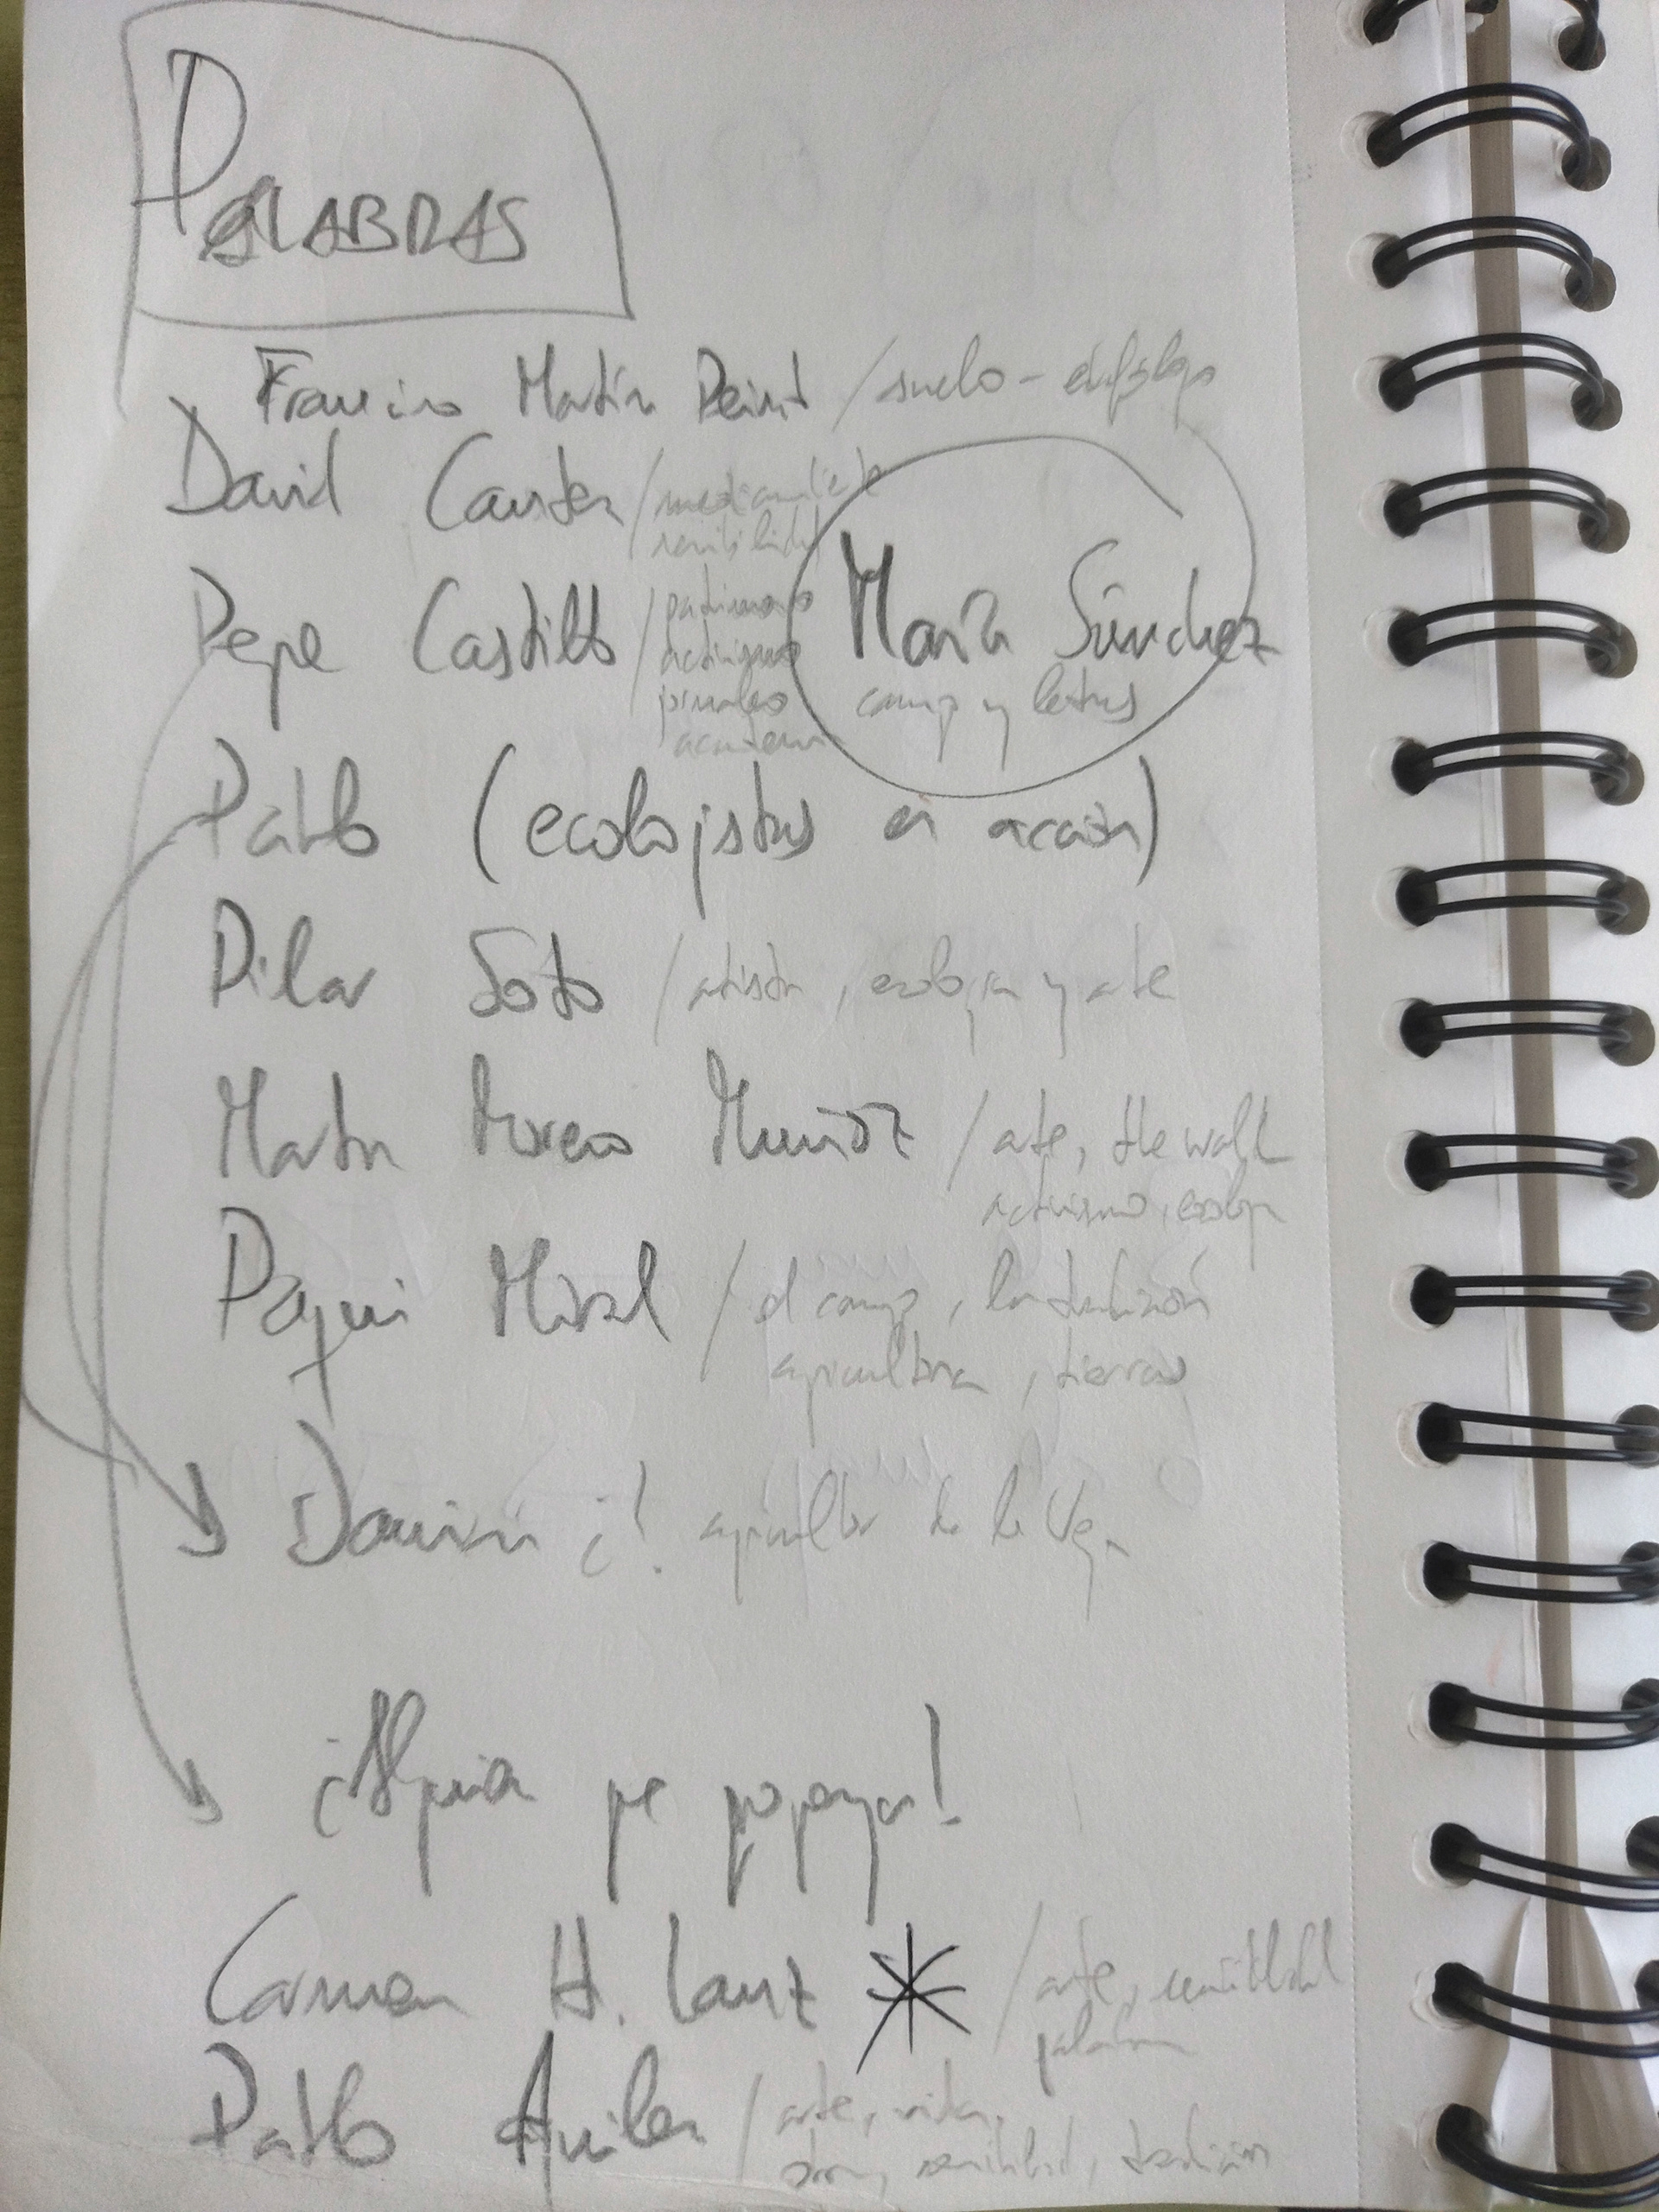 PALABRAS
Francisco Martín Peinado / suelo - edafólogo
David Causter / medioambiente
sensibilidad
Pepe Castillo / patrimonio
activismo
María Sánchez
campo y letras
academia
Pablo (ecologistas en acción)
Pilar Soto / artista, ecología y arte
Marta Moreno Muñoz / arte, the wall
activismo, ecología
Paqui Miral / el campo, la tradición
apicultura, tierras
¿! apicultor de la Vega
Carmen H. Lanz * / arte, sensibilidad
palabra
Pablo / arte, vida,
sensibilidad, tradición